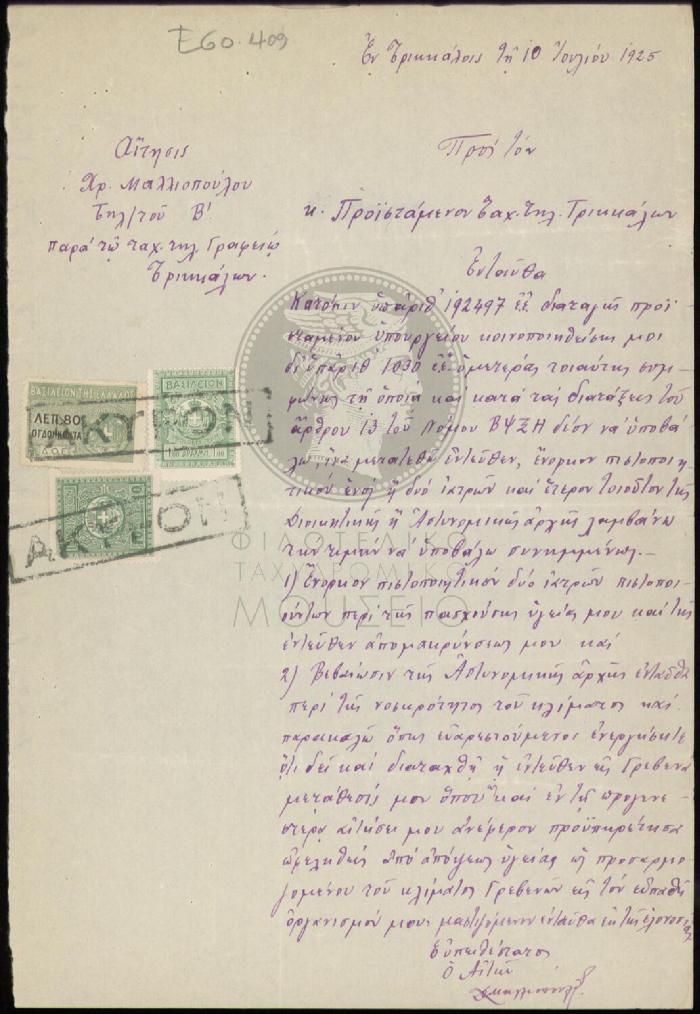 Ε60.409
Ἐν Τρικκάλοις τῇ 10 Ἰουλίου 1925
Αἴτησις
Χρ. Μαλλιοπούλου
Τηλ/τοῦ Β'
παρὰ τῷ ταχ. τηλ. Γραφείῳ
Τρικκάλων.
Πρὸς τὸν
κ. Προϊστάμενον Ταχ. Τηλ. Τρικκάλων
Ἐνταῦθα
Κατόπιν ὑπ' ἀριθ 192497 ἐ.ἔ. διαταγῆς προϊ
σταμένου ὑπουργείου κοινοποιηθείσης μοι
δι' ὑπ' ἀριθ 1030 ἐ.ἔ. ὑμετέρας τοιαύτης συμ-
φώνως τῇ ὁποίᾳ καὶ κατὰ τὰς διατάξεις τοῦ
ἄρθρου 13 τοῦ Νόμου ΒΨΞΗ δέον νὰ ὑποβά
λω, ἵνα μετατεθῶ ἐντεῦθεν, ἔνορκον πιστοποιη
τικὸν ἑνὸς ἢ δύο ἰατρῶν καὶ ἕτερον τοιοῦτον τῆς
Διοικητικῆς ἢ Ἀστυνομικῆς ἀρχῆς λαμβάνω
τὴν τιμὴν νὰ ὑποβάλω συνημμένως.—
1) Ἔνορκον πιστοποιητικὸν δύο ἰατρῶν πιστοποι-
ούντων περὶ τῆς πασχούσης ὑγείας μου καὶ τῆς
ἐντεῦθεν ἀπομακρύνσεως μου καὶ
2) Βεβαίωσιν τῆς Ἀστυνομικῆς ἀρχῆς ἐνταῦθα
περὶ τῆς νοσηρότητος τοῦ κλίματος καὶ
παρακαλῶ ὅπως εὐαρεστούμενοι ἐνεργήσητε
ὅ,τι δεῖ καὶ διαταχθῇ ἡ ἐντεῦθεν εἰς Γρεβενὰ
μετάθεσίς μου ὅπου καὶ ἐν τῇ προγενε
στέρᾳ αἰτήσει μου ἀνέφερον προϋπηρέτησα
ὠφεληθεὶς ἀπὸ ἀπόψεως ὑγείας ὡς προσαρμο
ζομένου τοῦ κλίματος Γρεβενῶν εἰς τὸν εὐπαθῆ
ὀργανισμόν μου, μαστιζόμενον ἐνταῦθα ἐκ τῆς ἑλονοσίας
Εὐπειθέστατος
Ὁ Αἰτῶν
Χρ. Μαλλιόπουλος
ΒΑΣΙΛΕΙΟΝ ΤΗΣ ΕΛΛΑΔΟΣ
ΛΕΠ. 80
ΟΓΔΟΗΚΟΝΤΑ
ΒΑΣΙΛΕΙΟΝ
ΑΚΥΡΟΝ
ΑΚΥΡΟΝ
ΦΙΛΟΤΕΛΙΚΟ
ΤΑΧΥΔΡΟΜΙΚΟ
ΜΟΥΣΕΙΟ